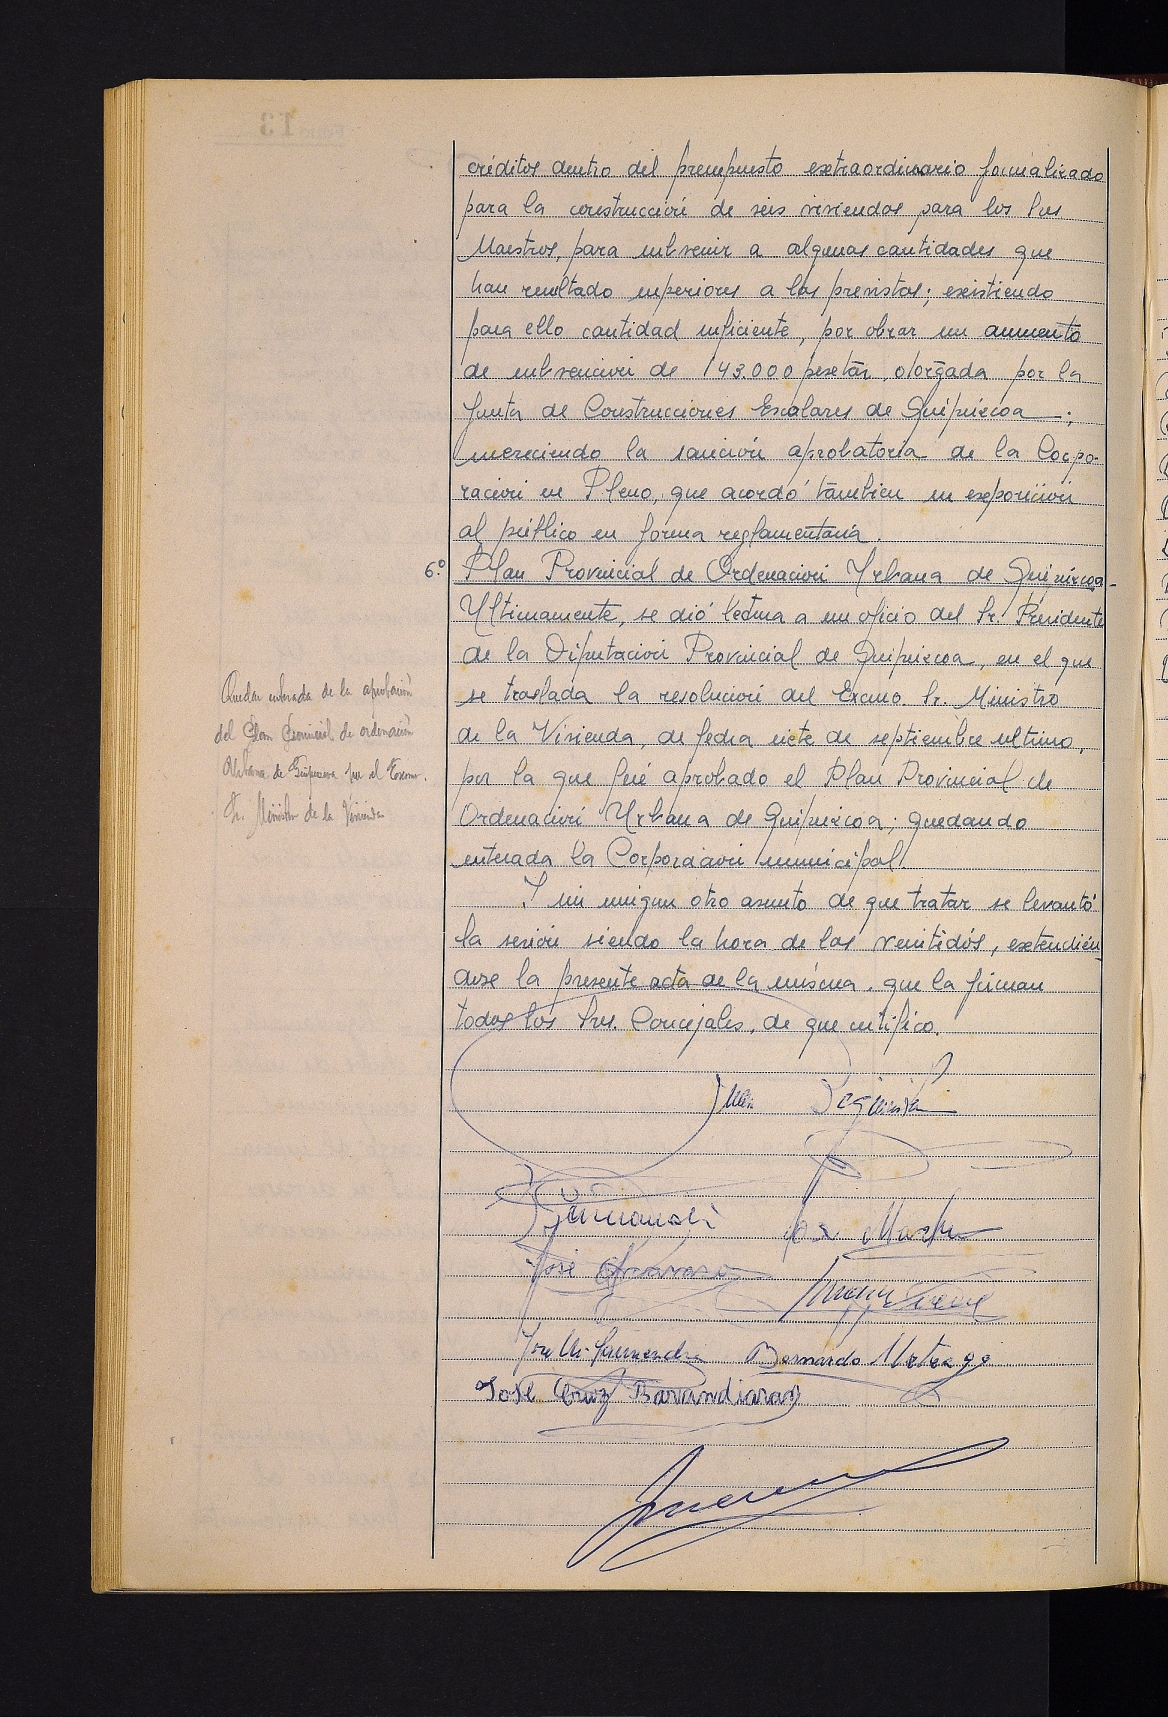 créditos dentro del presupuesto extraordinario formalizado
para la construcción de seis viviendas para los Sres
Maestros, para subvenir a algunas cantidades que
han resultado superiores a las previstas; existiendo
para ello cantidad suficiente, por obrar un aumento
de subvención de 143.000 pesetas, otorgada por la
Junta de Construcciones Escolares de Guipúzcoa;
mereciendo la sanción aprobatoria de la Corpo-
ración en Pleno, que acordó también su exposición
al público en forma reglamentaria.
6.º Plan Provincial de Ordenación Urbana de Guipúzcoa-
Ultimamente, se dió lectura a un oficio del Sr. Presidente
de la Diputación Provincial de Guipúzcoa, en el que
Quedar enterada de la aprobación
del Plan Provincial de ordenación
Urbana de Guipúzcoa por el Excmo.
Sr. Ministro de la Vivienda
se traslada la resolución del Excmo. Sr. Ministro
de la Vivienda, de fecha siete de septiembre último,
por la que fué aprobado el Plan Provincial de
Ordenación Urbana de Guipúzcoa; quedando
enterada la Corporación municipal.
Y sin ningun otro asunto de que tratar se levantó
la sesión siendo la hora de las veintidós, extendién-
dose la presente acta de la misma, que la firman
todos los Sres. Concejales, de que certifico.
José
Bernardo Urteaga
José Cruz Barandiaran